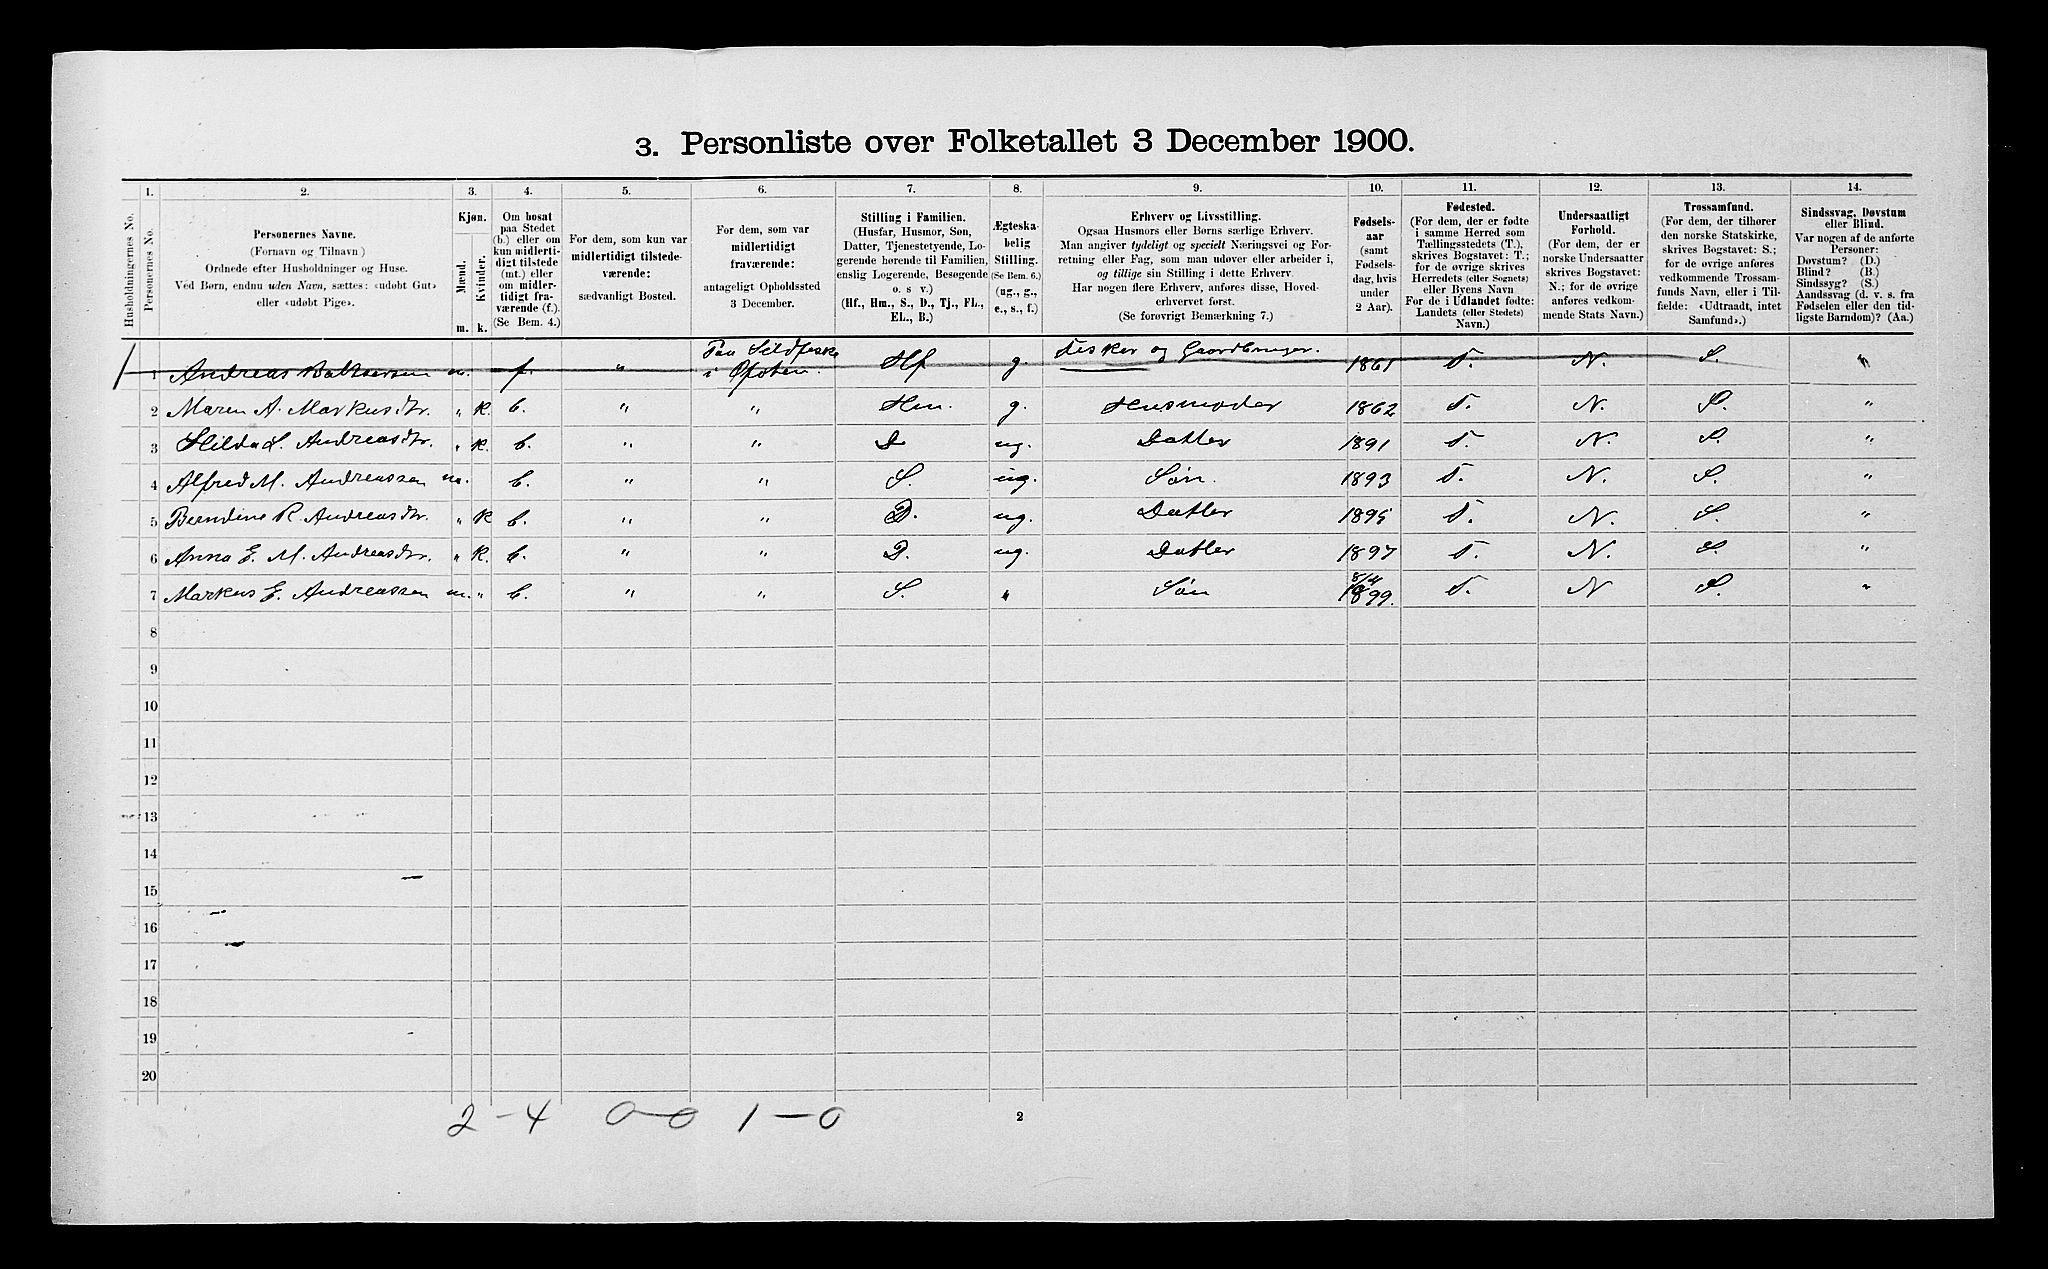 3. Personliste over Folketallet 3 December 1900.
1. 2. 3. 4. 5. 6. 7. 8. 9. 10. 11. 12. 13. 14.
Husholdningernes No.
Personernes No.
Personernes Navne.
(Fornavn og Tilnavn)
Ordnede efter Husholdninger og Huse.
Ved Børn, endnu uden Navn, sættes: «udøbt Gut»
eller «udøbt Pige».
Kjøn.
Mænd.
Kvinder.
m. k.
Om bosat
paa Stedet
(b.) eller om
kun midlerti-
digt tilstede
(mt.) eller
om midler-
tidigt fra-
værende (f.)
(Se Bem. 4.)
For dem, som kun var
midlertidigt tilstede-
værende:
sædvanligt Bosted.
For dem, som var
midlertidigt
fraværende:
antageligt Opholdssted
3 December.
Stilling i Familien.
(Husfar, Husmor, Søn,
Datter, Tjenestetyende, Lo-
gerende hørende til Familien,
enslig Logerende, Besøgende
o. s v.)
(Hf., Hm., S., D., Tj., FL.,
EL., B.)
Ægteska-
belig
Stilling.
(Se Bem. 6.)
(ug., g.,
e., s., f.)
Erhverv og Livsstilling.
Ogsaa Husmors eller Børns særlige Erhverv.
Man angiver tydeligt og specielt Næringsvei og For-
retning eller Fag, som man udøver eller arbeider i,
og tillige sin Stilling i dette Erhverv.
Har nogen flere Erhverv, anføres disse, Hoved-
erhvervet først.
(Se forøvrigt Bemærkning 7.)
Fødsels-
aar
(samt
Fødsels-
dag, hvis
under
2 Aar).
Fødested.
(For dem, der er fødte
i samme Herred som
Tællingsstedets (T.),
skrives Bogstavet: T.;
for de øvrige skrives
Herredets (eller Sognets)
eller Byens Navn
For de i Udlandet fødte:
Landets (eller Stedets)
Navn.)
Undersaatligt
Forhold.
(For dem, der er
norske Undersaatter
skrives Bogstavet:
N.; for de øvrige
anføres vedkom-
mende Stats Navn.)
Trossamfund.
(For dem, der tilhører
den norske Statskirke,
skrives Bogstavet: S.;
for de øvrige anføres
vedkommende Trossam-
funds Navn, eller i Til-
fælde: «Udtraadt, intet
Samfund».)
Sindssvag, Døvstum
eller Blind.
Var nogen af de anførte
Personer:
Døvstum? (D.)
Blind? (B.)
Sindssyg? (S.)
Aandssvag (d. v. s. fra
Fødselen eller den tid-
ligste Barndom)? (Aa.)
1 Andreas Baltsersen m. f. " Paa Sildfiske i Ofoten. Hf g. Fisker og Gaardbruger. 1861 T. N. S. "
2 Maren A. Markusdtr. " k. b. " " Hm. g. Husmoder 1862 T. N. S. "
3 Hilda L. Andreasdtr. " k. b. " " D ug. Datter 1891 T. N. S. "
4 Alfred M. Andreassen m. b. " " S. ug. Søn. 1893 T. N. S. "
5 Berndine R. Andreasdtr. " k b. " " D. ug. Datter 1895 T. N. S. "
6 Anna E. M. Andreasdtr. " k. b. " " D. ug. Datter 1897 T. N. S. "
7 Markus E. Andreassen m. " b. " " S. " Søn 8/4 1899. T. N S. "
8
9
10
11
12
13
14
15
16
17
18
19
20
2 – 4 0 – 0 1 – 0
2